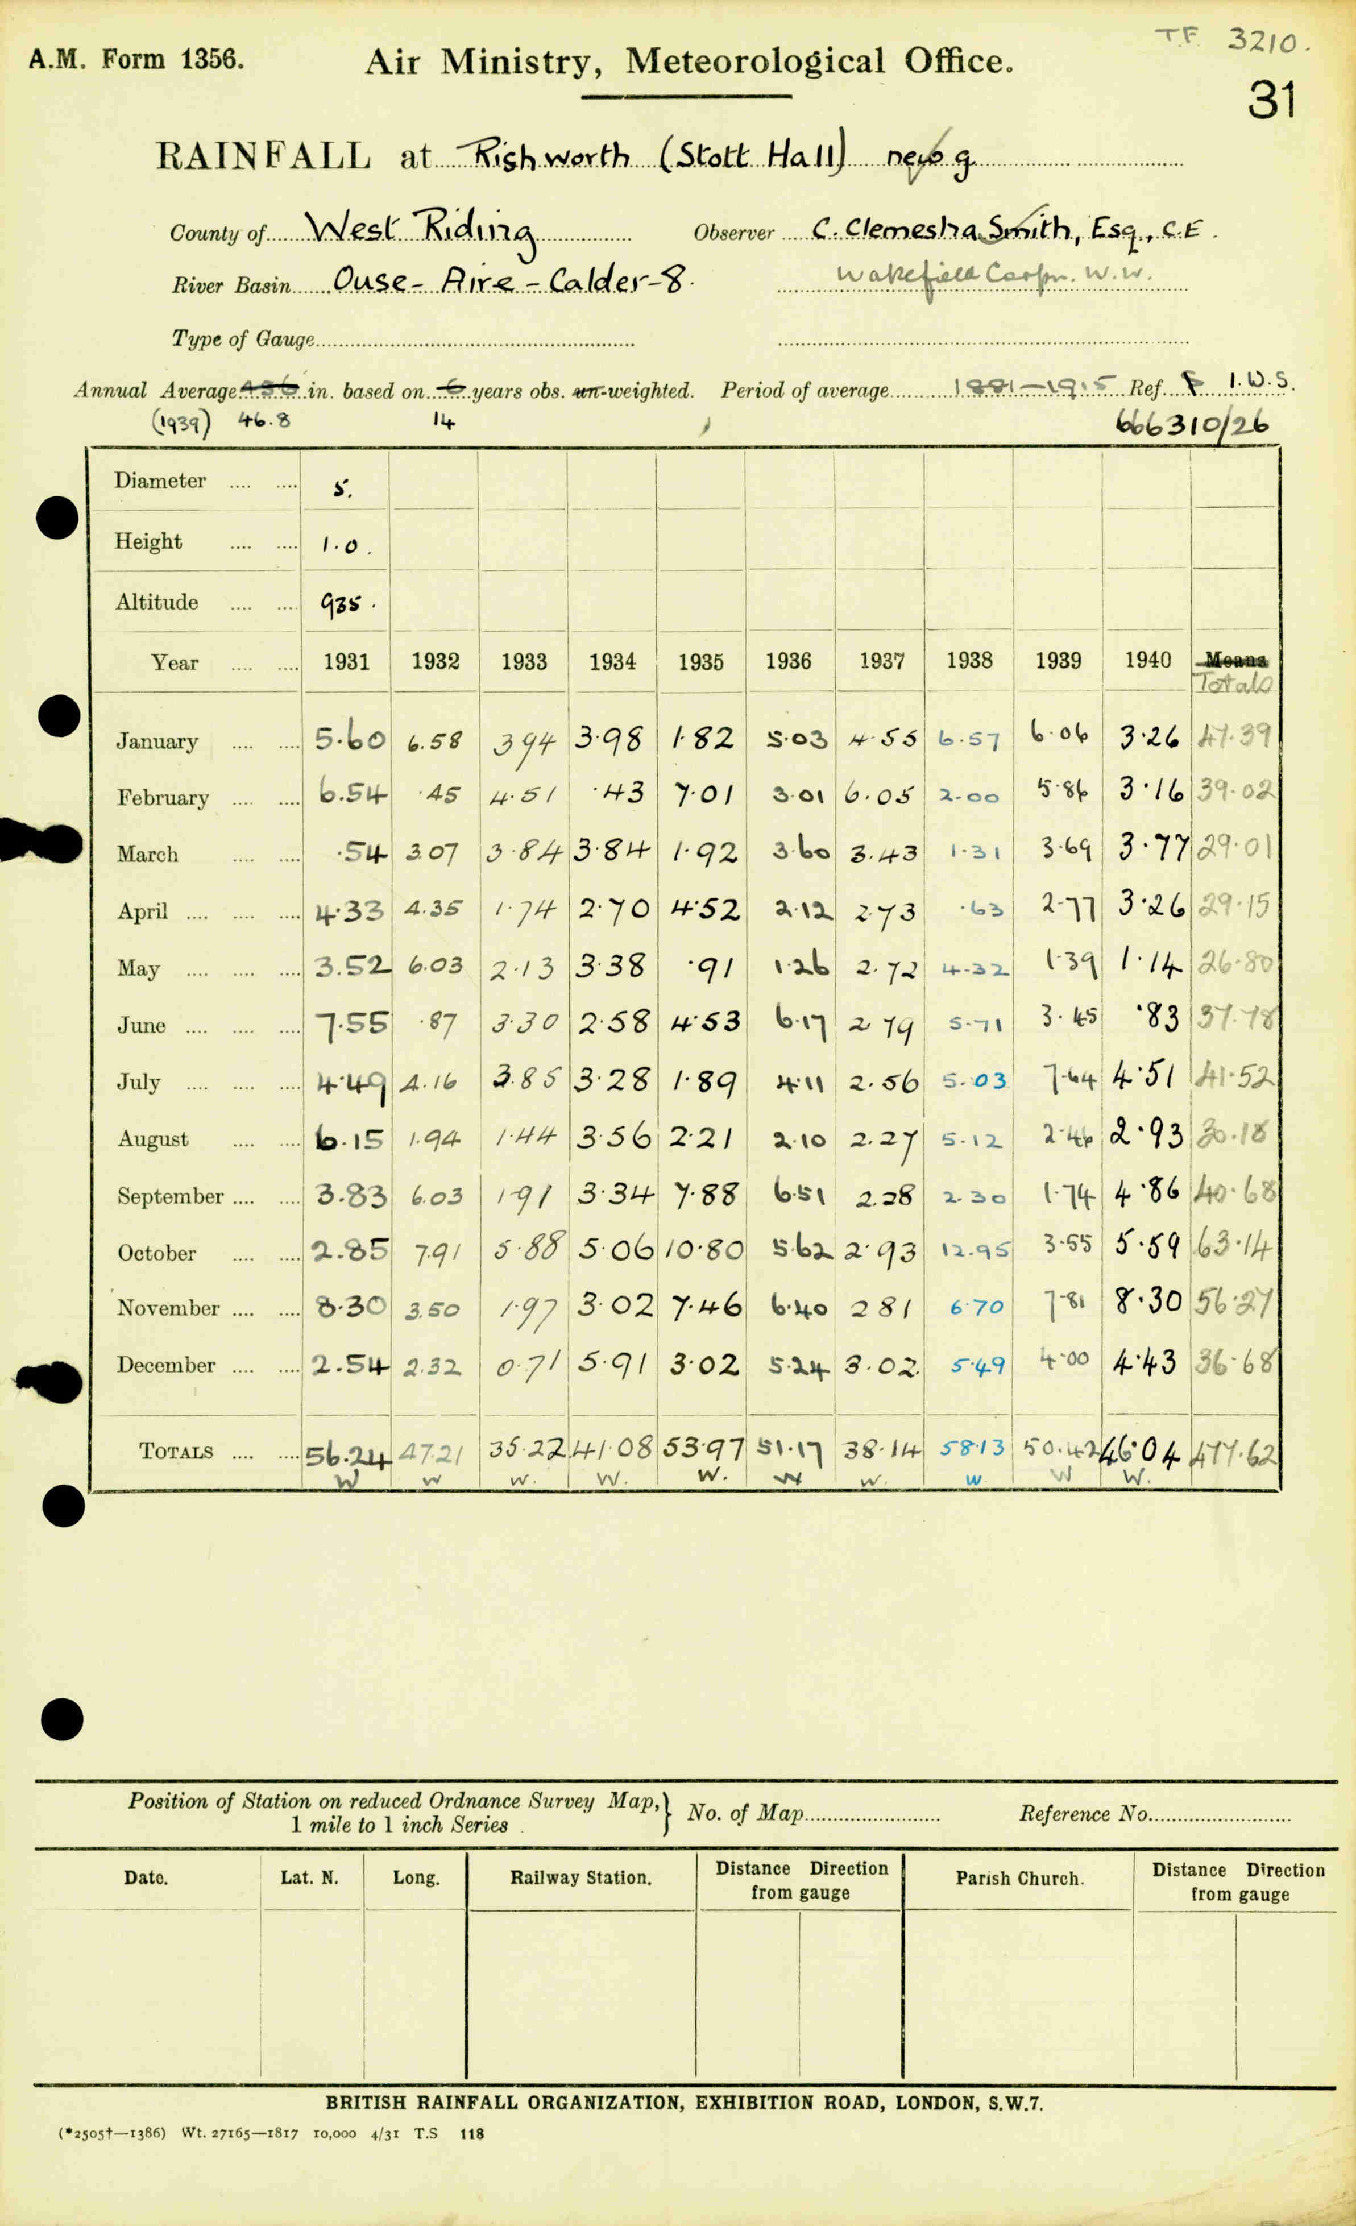 T.F. 3210.
A.M. Form 1356. Air Ministry, Meteorological Office.
31
RAINFALL at Rishworth (Stott Hall) new g
County of West Riding Observer C. Clemesha Smith, Esq., C.E.
River Basin Ouse - Aire - Calder - 8. Wakefield Corpn. W.W.
Type of Gauge
Annual Average in. based on 6 years obs. un-weighted. Period of average 1881-1915 Ref. I.W.S.
(1939) 46.8 14 666310/26
Diameter 5.
Height 1.0.
Altitude 935.
Year 1931 1932 1933 1934 1935 1936 1937 1938 1939 1940 Means
Totals
January 5.60 6.58 3.94 3.98 1.82 5.03 4.55 6.57 6.06 3.26 47.39
February 6.54 .45 4.51 .43 7.01 3.01 6.05 2.00 5.86 3.16 39.02
March .54 3.07 3.84 3.84 1.92 3.60 3.43 1.31 3.69 3.77 29.01
April 4.33 4.35 1.74 2.70 4.52 2.12 2.73 .63 2.77 3.26 29.15
May 3.52 6.03 2.13 3.38 .91 1.26 2.72 4.32 1.39 1.14 26.80
June 7.55 .87 3.30 2.58 4.53 6.17 2.79 5.71 3.45 .83 37.78
July 4.49 4.16 3.85 3.28 1.89 4.11 2.56 5.03 7.64 4.51 41.52
August 6.15 1.94 1.44 3.56 2.21 2.10 2.27 5.12 2.46 2.93 30.18
September 3.83 6.03 1.91 3.34 7.88 6.51 2.28 2.30 1.74 4.86 40.68
October 2.85 7.91 5.88 5.06 10.80 5.62 2.93 12.95 3.55 5.59 63.14
November 8.30 3.50 1.97 3.02 7.46 6.40 2.81 6.70 7.81 8.30 56.27
December 2.54 2.32 0.71 5.91 3.02 5.24 3.02 5.49 4.00 4.43 36.68
TOTALS 56.24 47.21 35.22 41.08 53.97 51.17 38.14 58.13 50.42 46.04 477.62
W W W. W. W. W W. W W W.
Position of Station on reduced Ordnance Survey Map, } No. of Map Reference No.
1 mile to 1 inch Series
Date. Lat. N. Long. Railway Station. Distance Direction from gauge Parish Church. Distance Direction from gauge
BRITISH RAINFALL ORGANIZATION, EXHIBITION ROAD, LONDON, S.W.7.
(*2505†—1386) Wt. 27165—1817 10,000 4/31 T.S 118